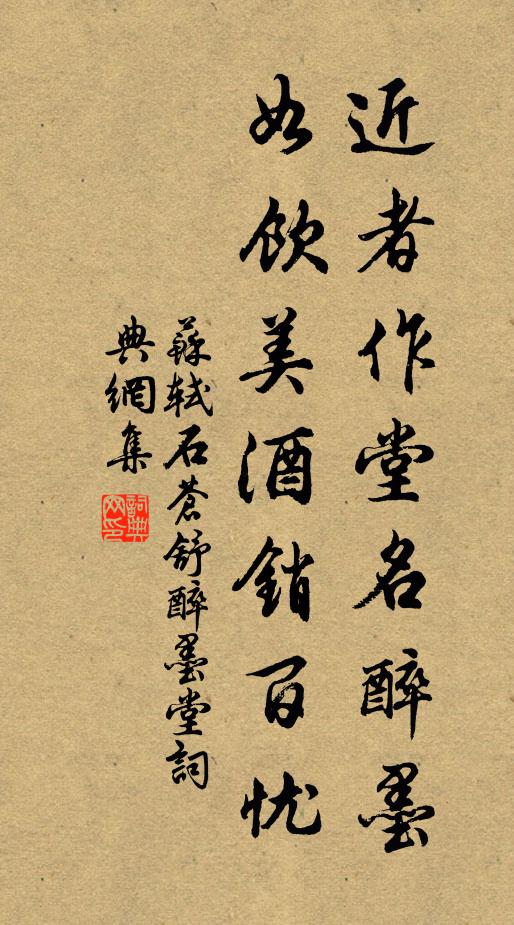 近者作堂名醉墨
如飲美酒銷百忧
蘇軾石蒼舒醉墨堂詞
典網集
詞典網印